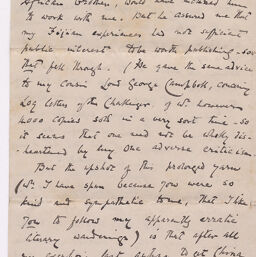 African brother, would have induced him
to work with me. But he assured me that
my Fijian experiences had not sufficient
public interest to be worth publishing. so
that fell through. (He gave the same advice
to my cousin Lord George Campbell, concerng
Log letters of the Challenger, of wh however
4000 copies sold in a very short time - so
it seems that one need not be wholly dis-
-heartened by any one adverse criticism
But the upshot of this prolonged yarn
(wh I have spun because you were so
kind and sympathetic to me, that I like
you to follow my apparently erratic
literary wanderings) is that after all
my